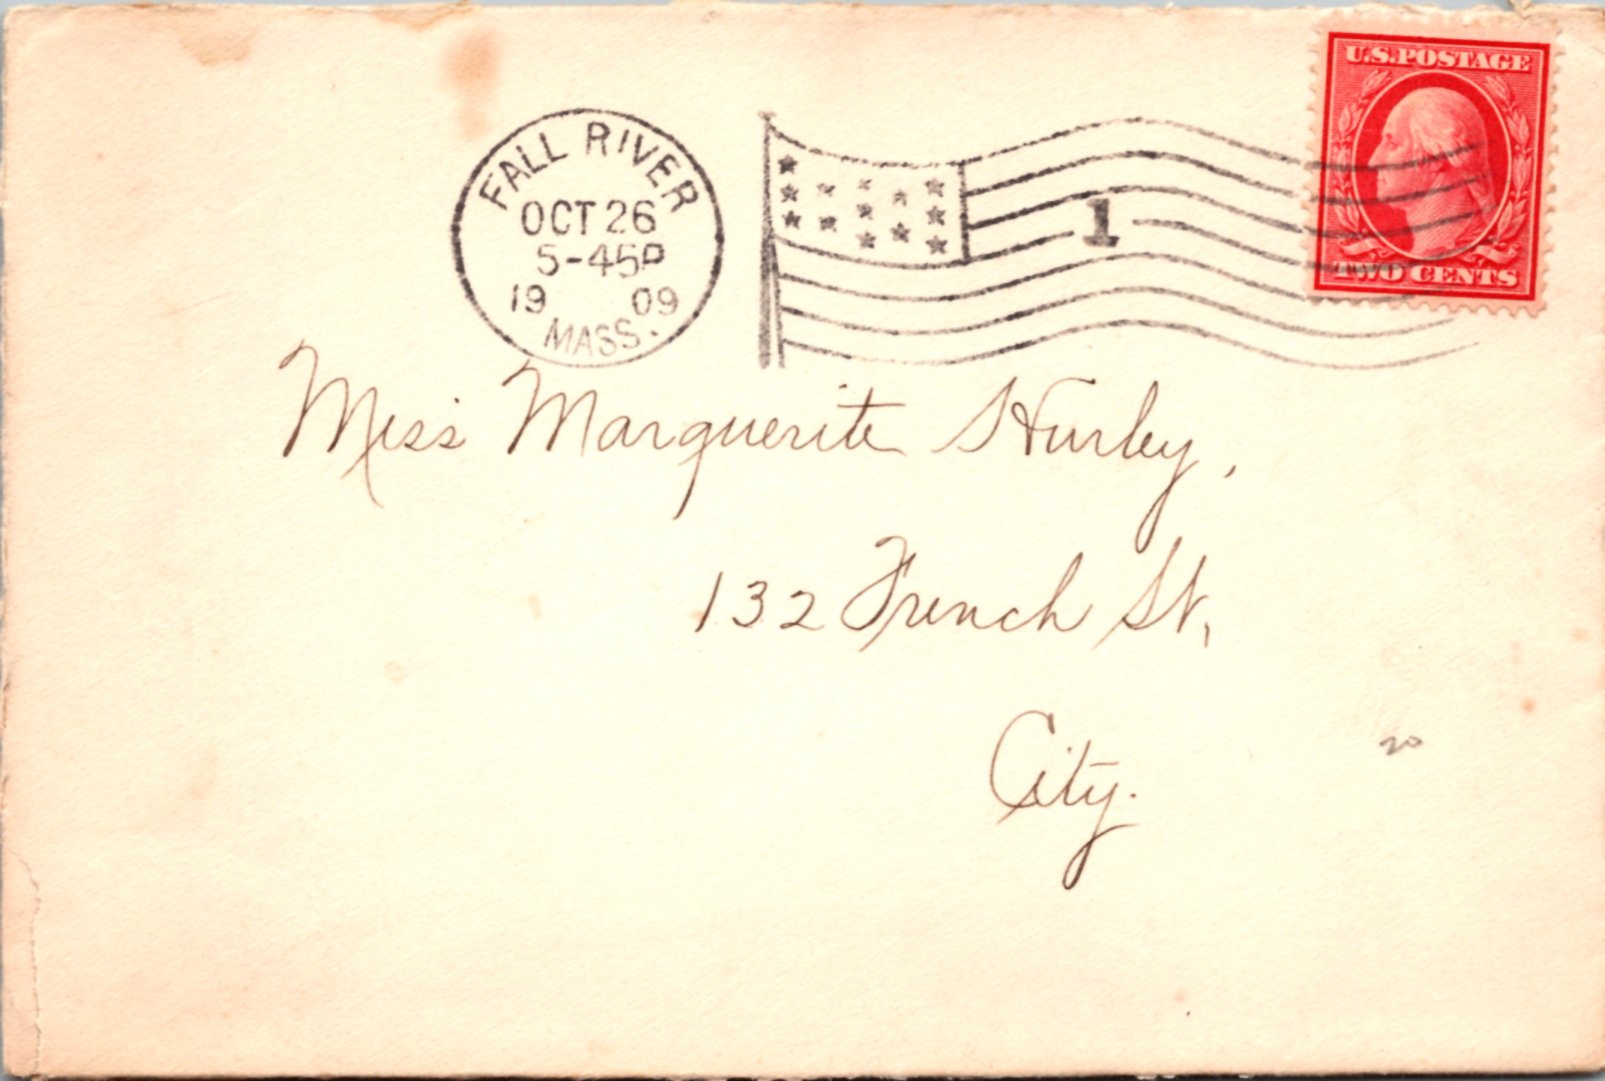 U.S. POSTAGE
FALL RIVER
OCT 26
5-45P
1909
MASS.
1
TWO CENTS
Miss Marguerite Hurley,
132 French St,
City.
20